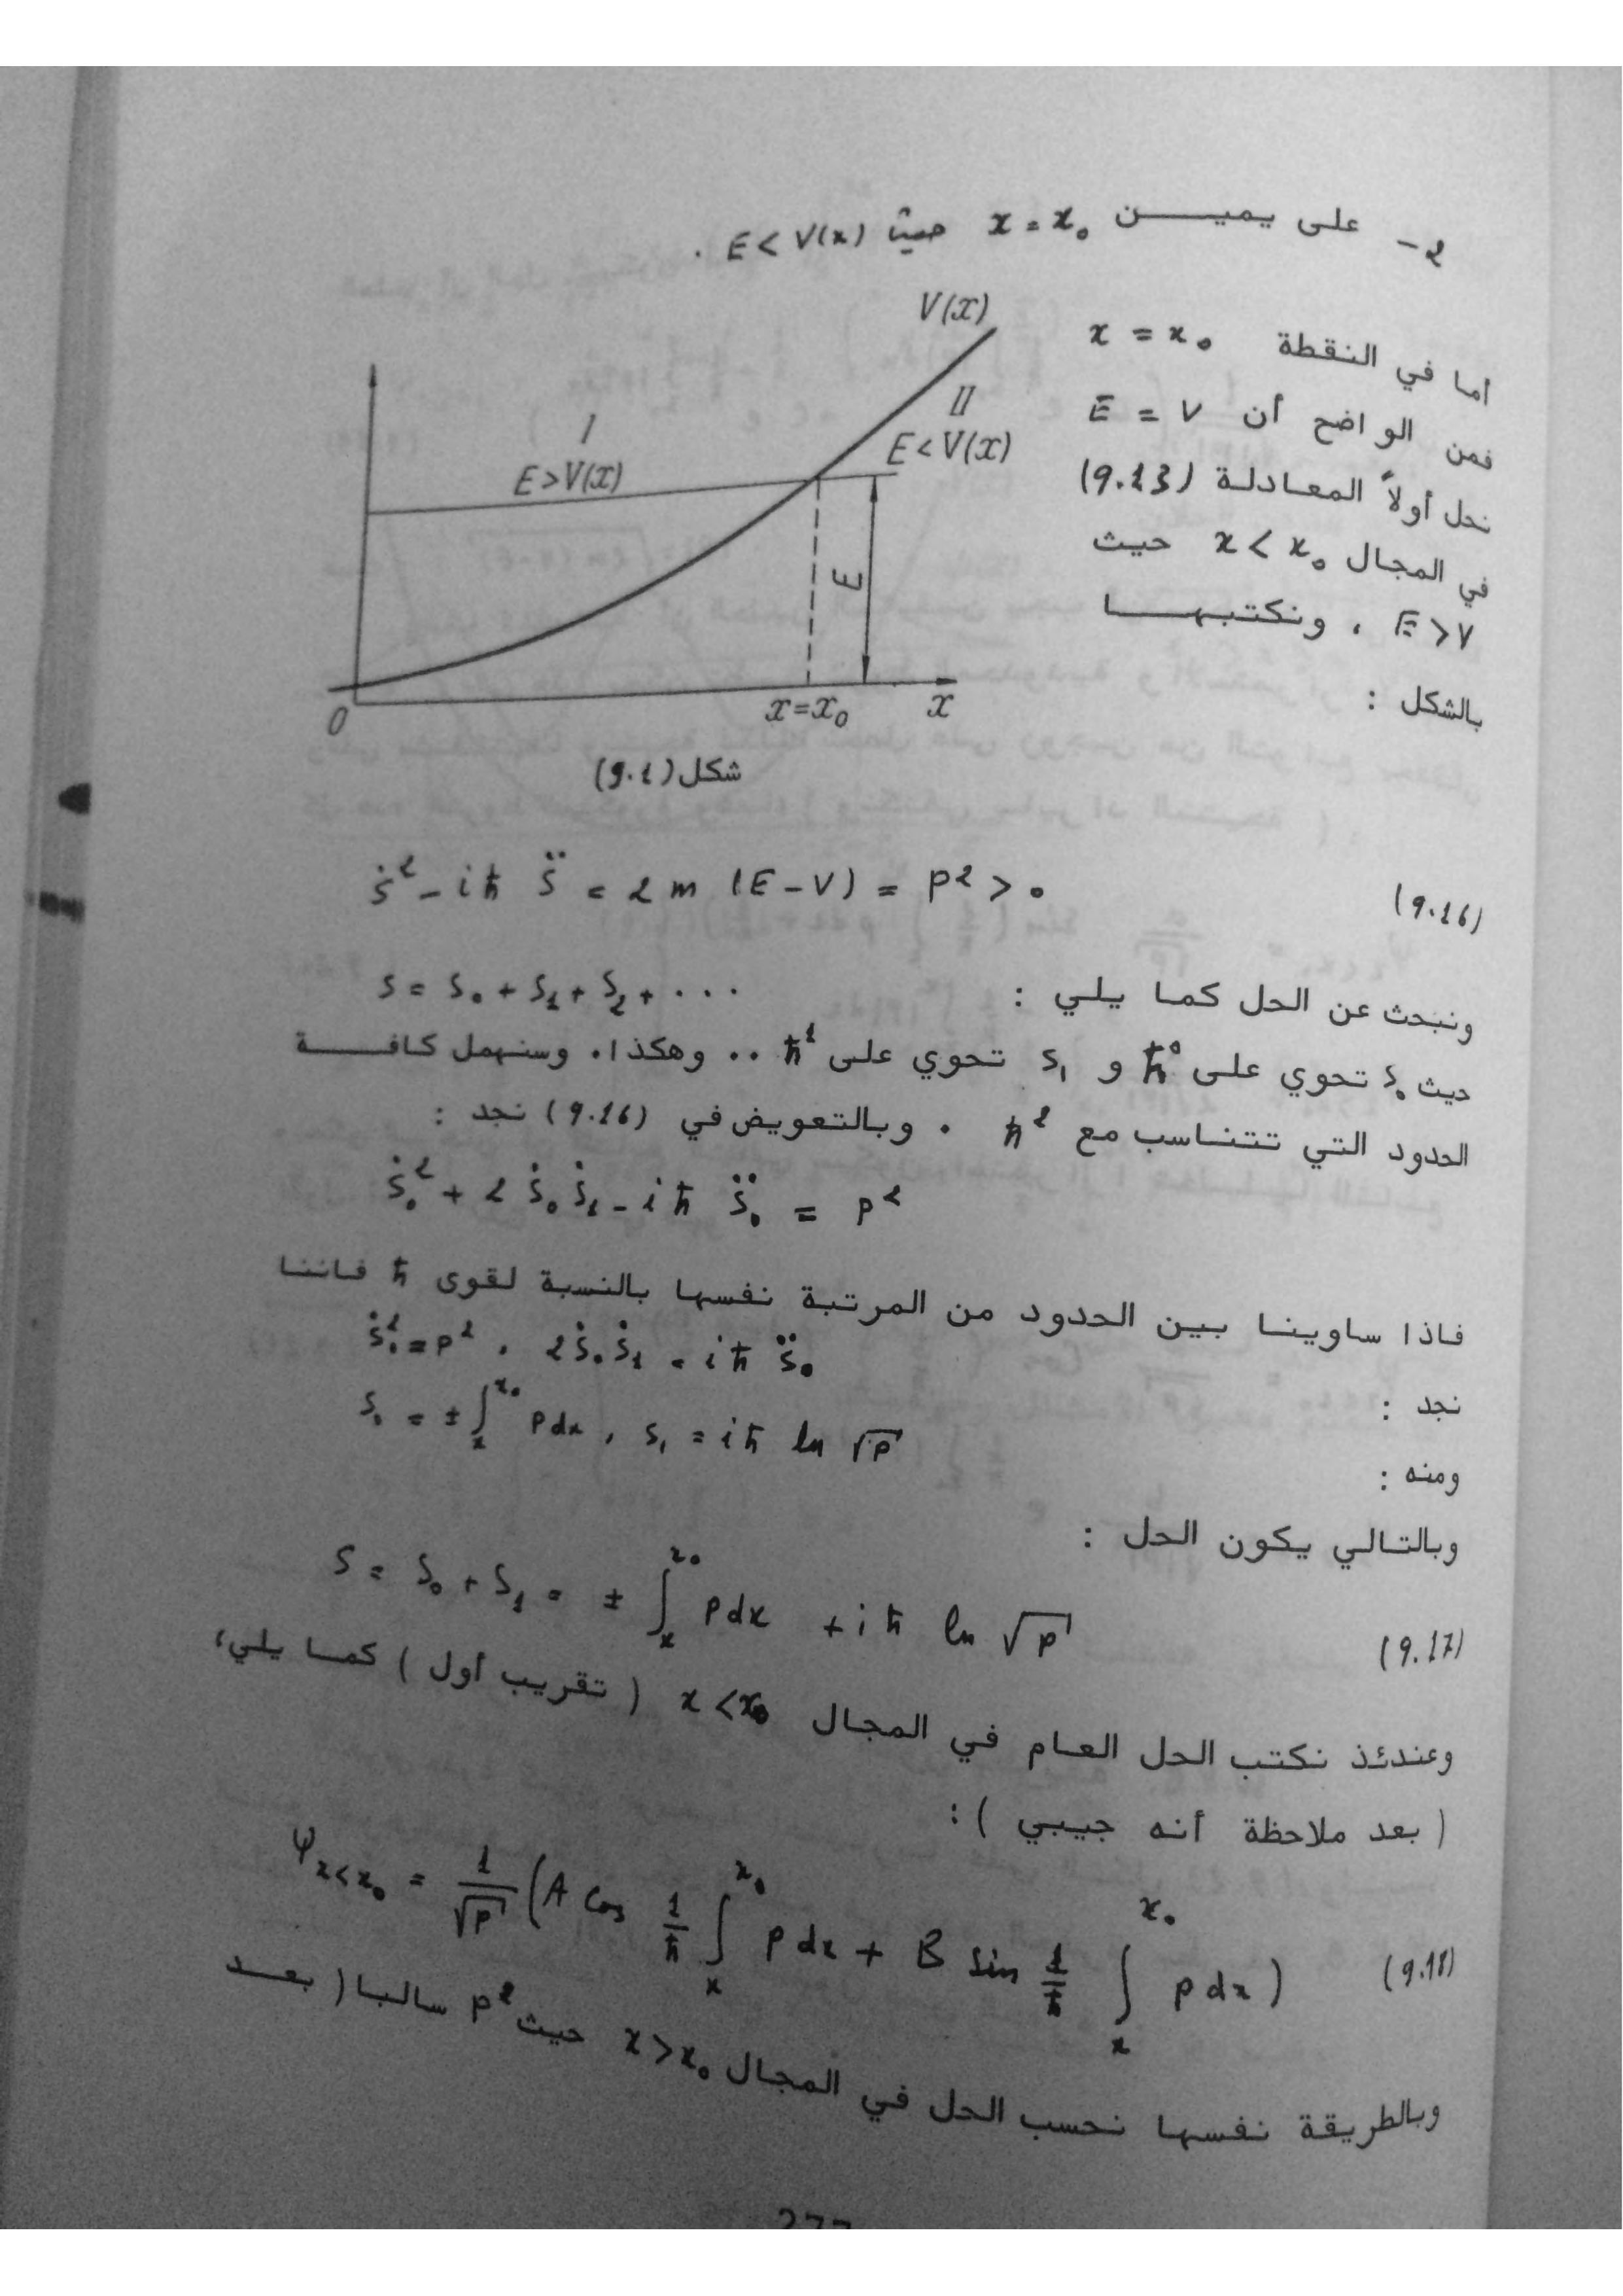 2- على يميــــن x = x₀ حيث E < V(x) .
أما في النقطة x = x₀
فمن الواضح أن E = V
نحل أولاً المعادلة (9.13)
في المجال x < x₀ حيث
E > V ، ونكتبهــــا
بالشكل :
V(x)
I
II
E > V(x)
E < V(x)
E
0
x = x₀
x
شكل (9.1)
Ṡ² - iħ S̈ = 2m (E - V) = P² > 0 (9.16)
ونبحث عن الحل كما يلي : S = S₀ + S₁ + S₂ + . . .
حيث S₀ تحوي على ħ⁰ و S₁ تحوي على ħ¹ .. وهكذا. وسنهمل كافــــة
الحدود التي تتناسب مع ħ² . وبالتعويض في (9.16) نجد :
Ṡ₀² + 2 Ṡ₀ Ṡ₁ - iħ S̈₀ = P²
فاذا ساوينا بين الحدود من المرتبة نفسها بالنسبة لقوى ħ فاننا
نجد : Ṡ₀² = P² , 2Ṡ₀Ṡ₁ = iħ S̈₀
ومنه : S₀ = ± ∫ₓ^x₀ P dx , S₁ = iħ ln √P
وبالتالي يكون الحل :
S = S₀ + S₁ = ± ∫ₓ^x₀ P dx + iħ ln √P (9.17)
وعندئذ نكتب الحل العام في المجال x < x₀ ( تقريب أول ) كما يلي،
( بعد ملاحظة أنه جيبي ) :
Ψ_{x<x₀} = 1/√P (A Cos 1/ħ ∫ₓ^x₀ P dx + B Sin 1/ħ ∫ₓ^x₀ P dx) (9.18)
وبالطريقة نفسها نحسب الحل في المجال x > x₀ حيث P² سالبا ( بعــد
277